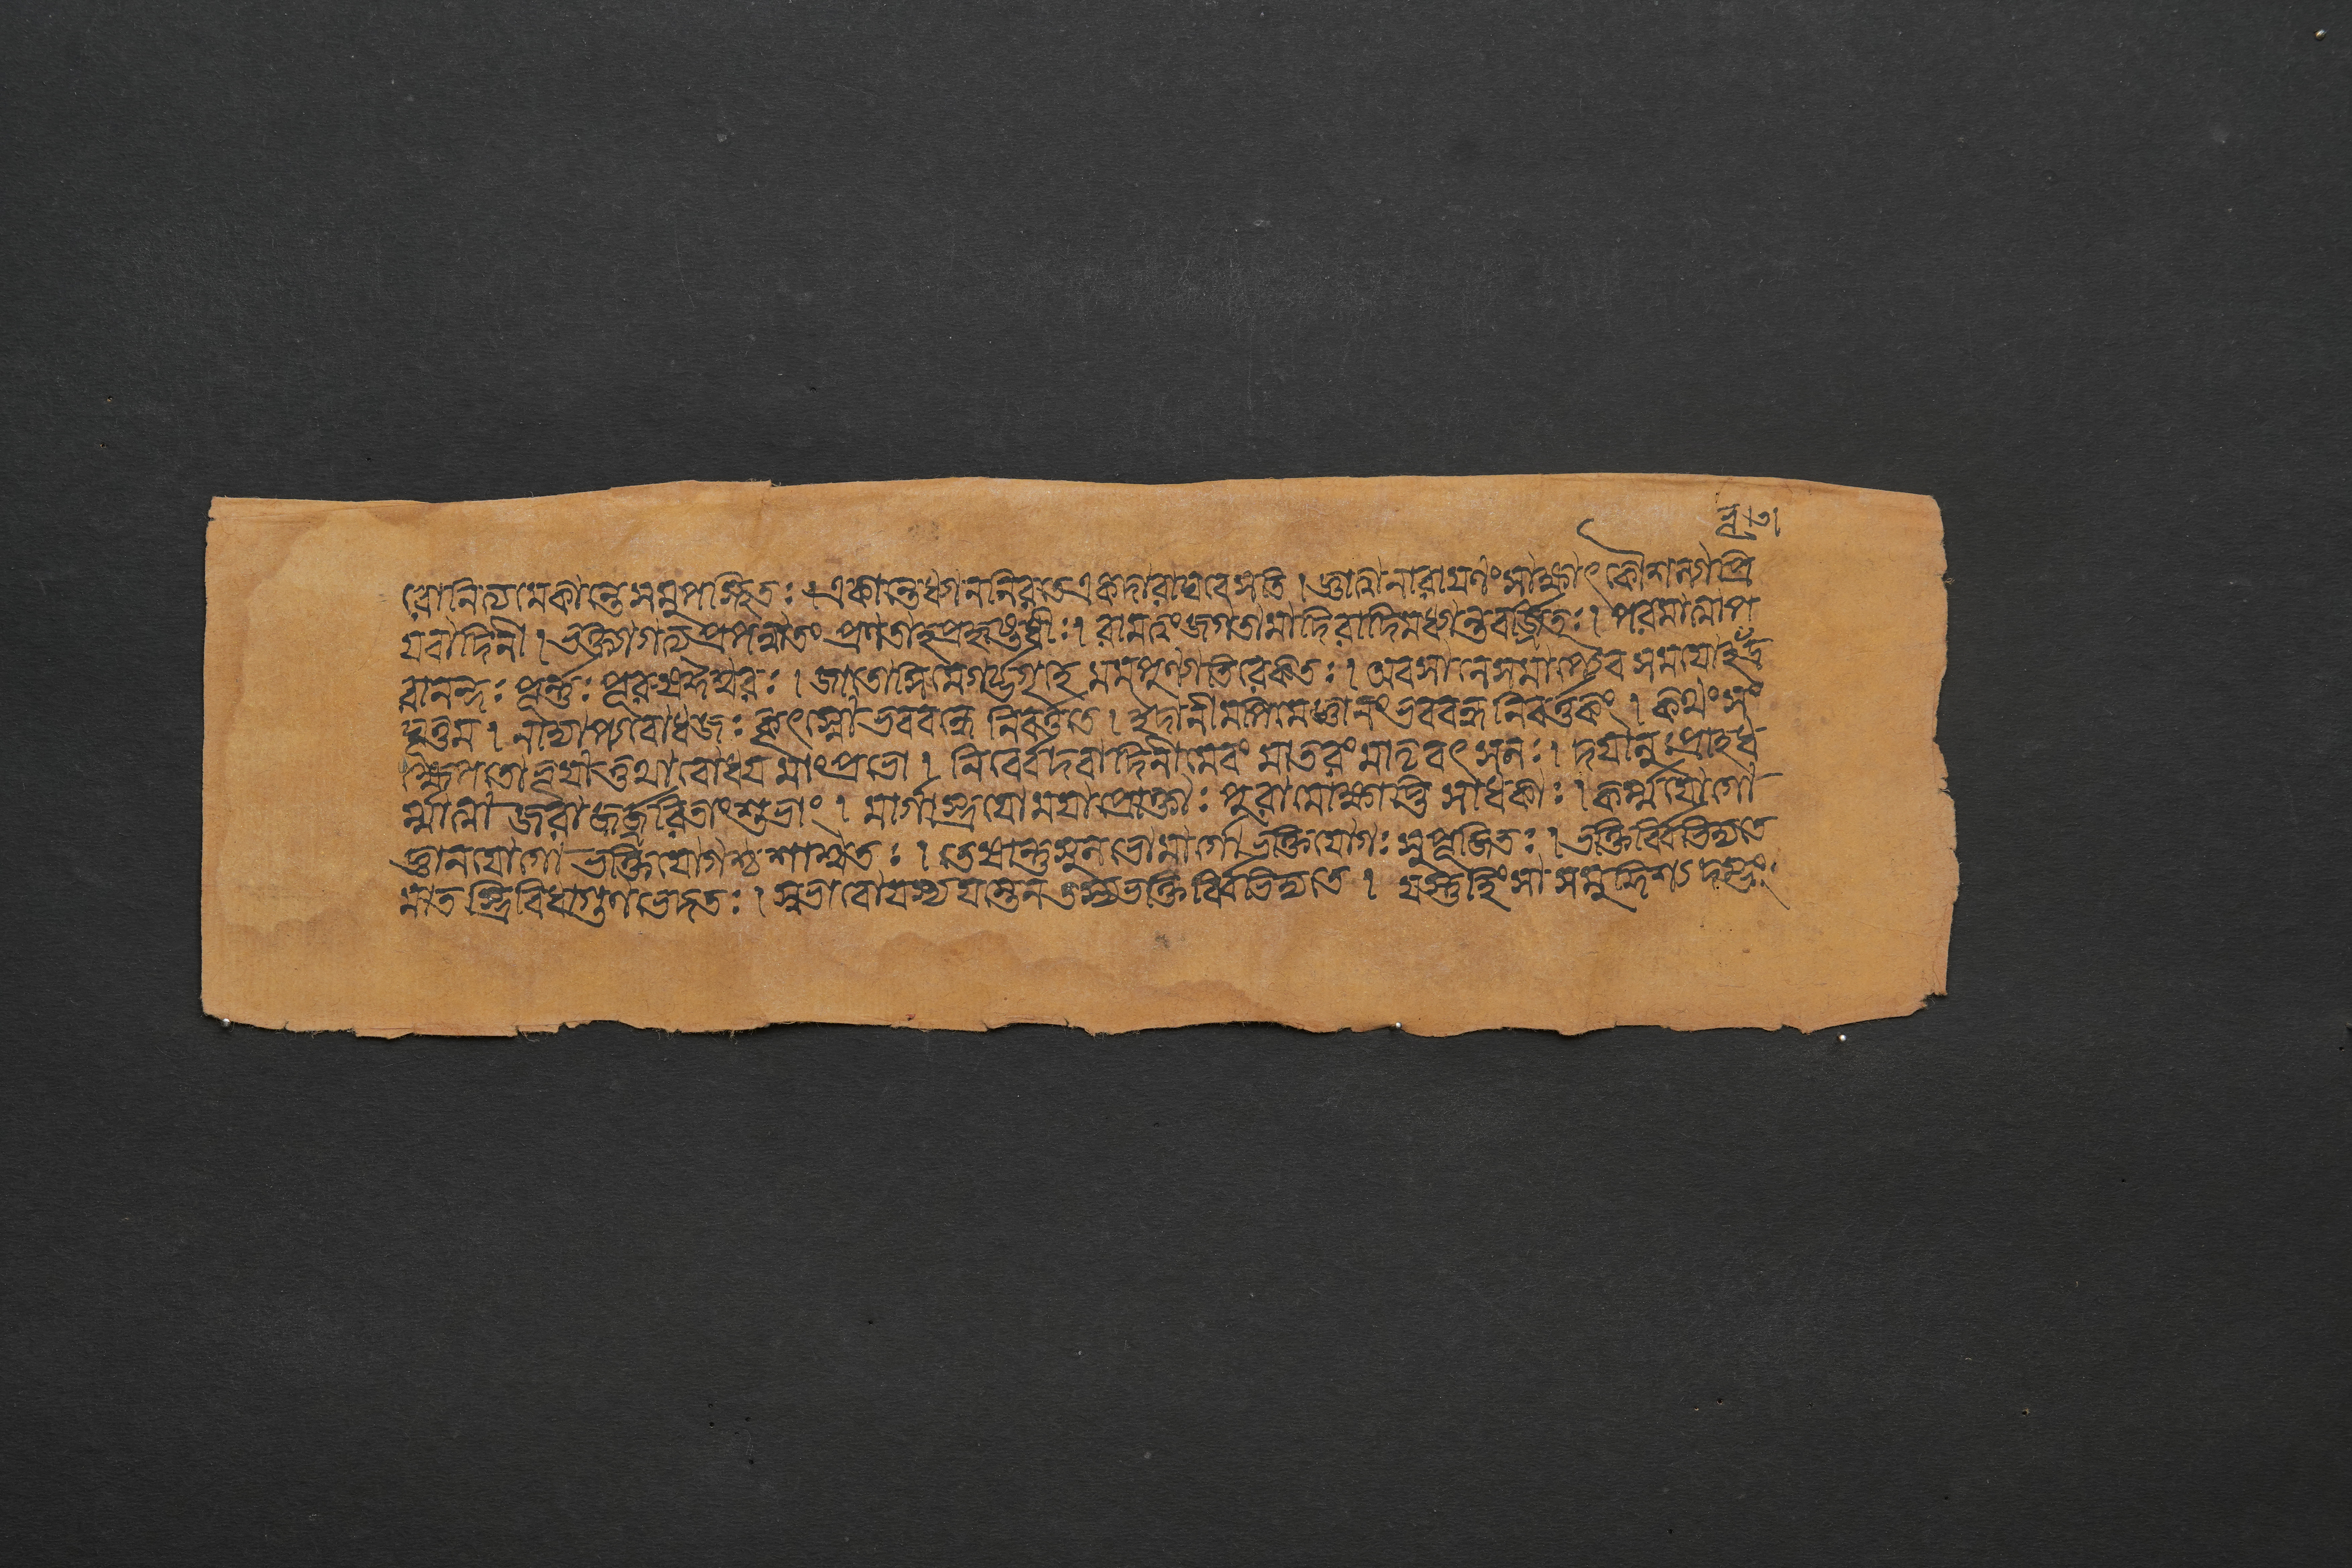 রোনিত্যমেকান্তে সমুপস্থিতঃ। একান্তে ধ্যাননিরতে একদারাঘবে সতি। জ্ঞাত্বানারায়ণংসাক্ষাৎ কৌশল্যাপ্রি
যবাদিনী। ভক্ত্যাগত্য প্রপন্নাতং প্রণতাহ প্রহৃষ্টধীঃ। রামত্বংজগতামাদিরাদিমধ্যান্তবর্জ্জিতঃ। পরমাত্মাপ
রানন্দঃ পূর্ন্নঃ পুরুষঈশ্বরঃ। জাতোসিমেগর্ভগৃহে মমপুণ্যাতিরেকতঃ। অবসানেসমাপ্তেব সময়োভূদ্র
ঘূত্তম। নাদ্যাপ্যবোধজঃ কৃৎস্নোভববন্ধো নিবর্ত্ততে। ইদানীমপিমেজ্ঞানংভববন্ধনিবর্ত্তকং। কথংসং
ক্ষেপতোভূয়াত্তথাবোধয়মাংপ্রভো। নির্বেদবাদিনীমেবং মাতরংমাতৃবৎসলঃ। দয়ালুঃপ্রাহধ
র্ম্মাত্মা জরাজর্জ্জরিতাংশুভাং। মার্গাস্ত্রয়োময়াপ্রোক্তাঃ পুরামোক্ষাপ্তিসাধকাঃ। কর্ম্মযোগো
জ্ঞানযোগো ভক্তিযোগশ্চশাশ্বতঃ। তেষান্তুসুলভোমার্গো ভক্তিযোগঃ সুপূজিতঃ। ভক্তির্বিভিদ্যতে
মাত স্ত্রিবিধাগুণভেদতঃ। স্বভাবোযস্যযস্তেন তস্যভক্তির্বিভিদ্যতে। যস্তুহিংসা সমুদ্দিশ্য দম্ভং